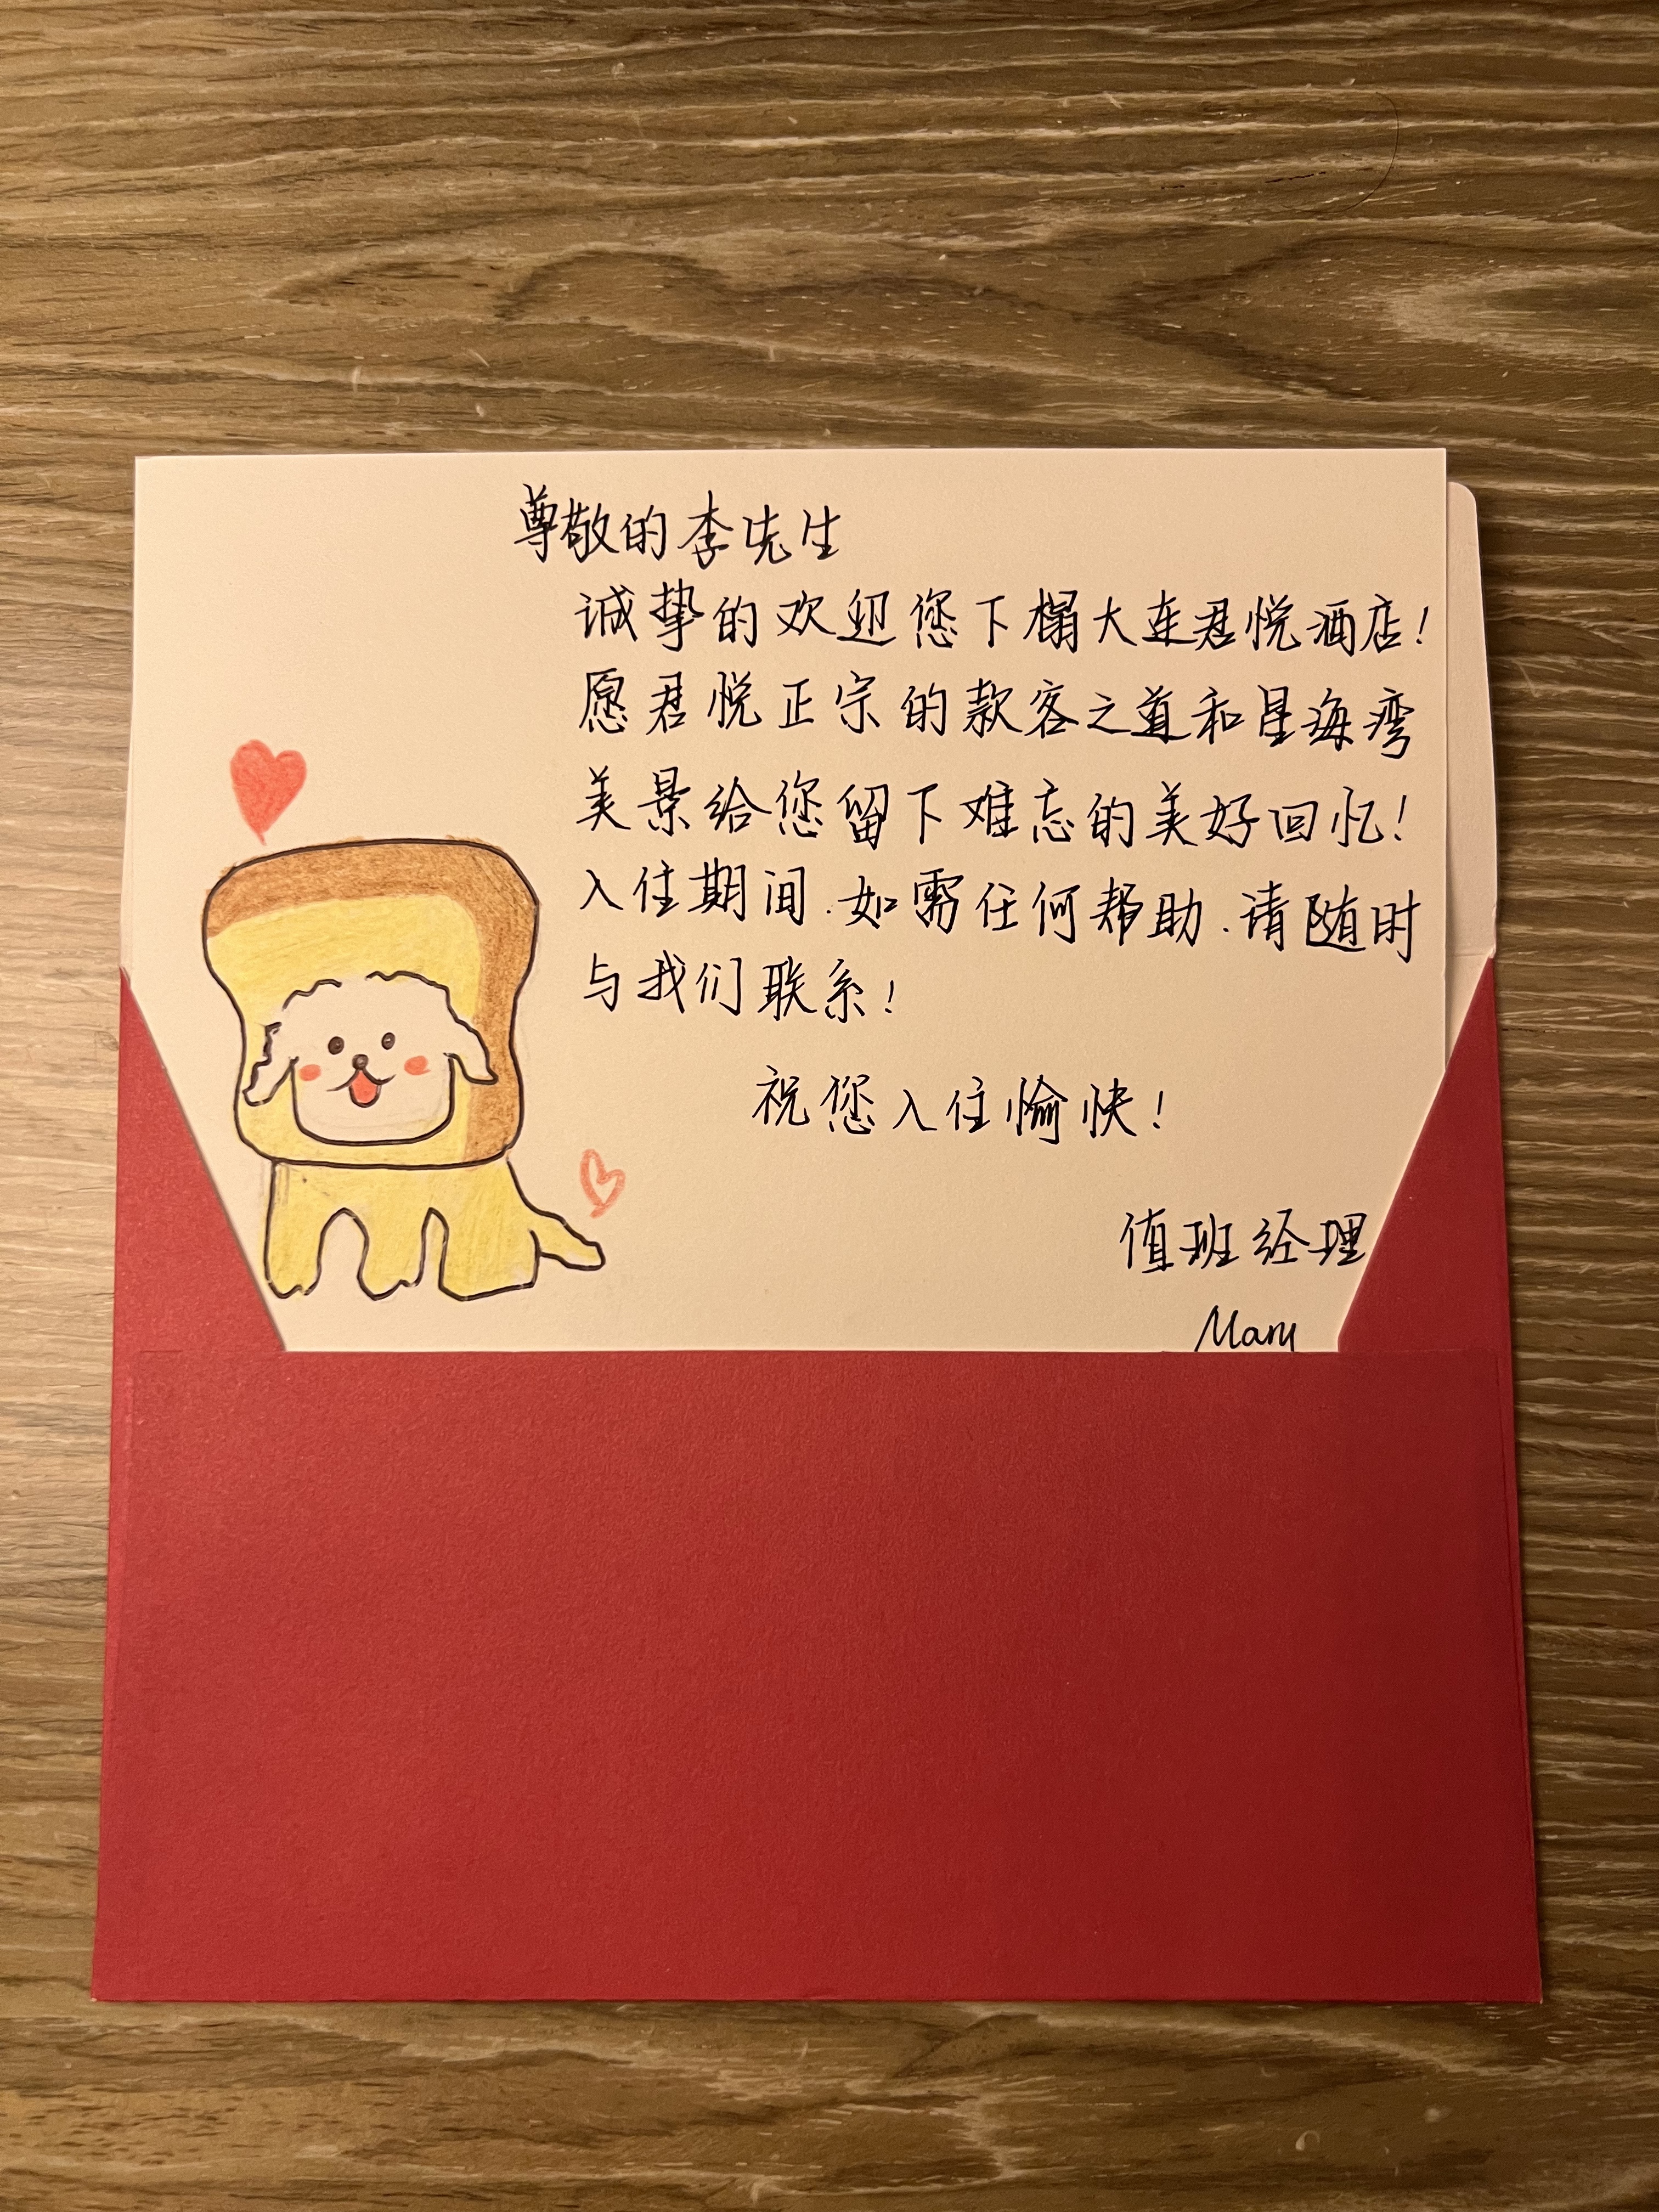 尊敬的李先生
诚挚的欢迎您下榻大连君悦酒店！
愿君悦正宗的款客之道和星海湾
美景给您留下难忘的美好回忆！
入住期间.如需任何帮助.请随时
与我们联系！
祝您入住愉快！
值班经理
Mary